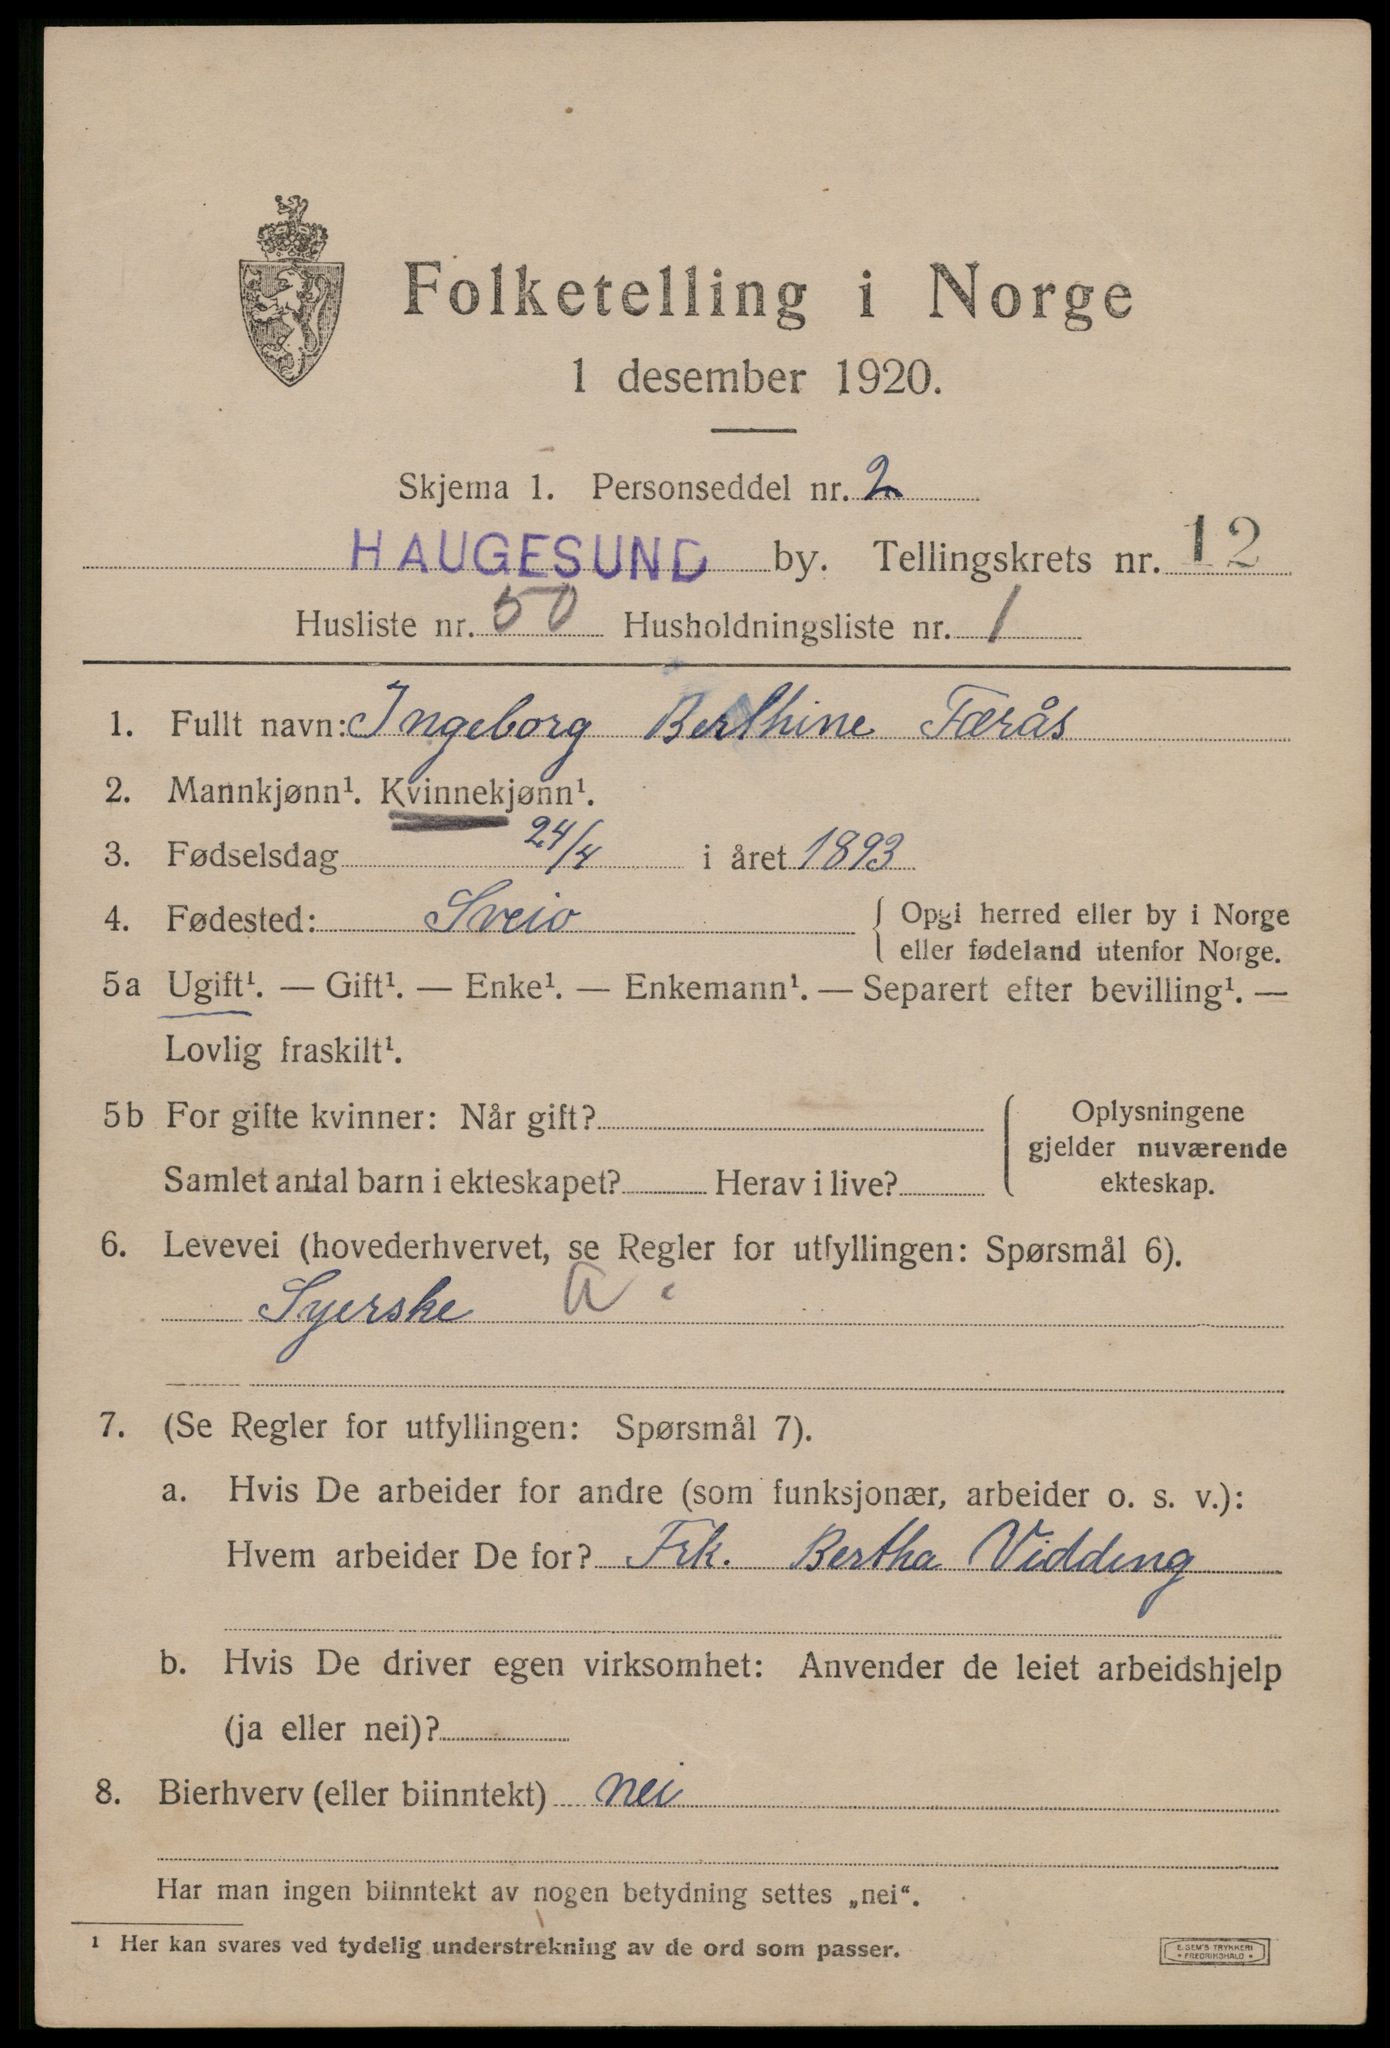 Folketelling i Norge
1 desember 1920.
Skjema 1. Personseddel nr. 2
HAUGESUND by. Tellingskrets nr. 12
Husliste nr. 50 Husholdningsliste nr. 1
1. Fullt navn: Ingeborg Berthine Færås
2. Mannkjønn¹. Kvinnekjønn¹.
3. Fødselsdag 24/4 i året 1893
4. Fødested: Sveio { Opgi herred eller by i Norge
eller fødeland utenfor Norge.
5a Ugift¹. — Gift¹. — Enke¹. — Enkemann¹. — Separert efter bevilling¹. —
Lovlig fraskilt¹.
5b For gifte kvinner: Når gift? { Oplysningene
gjelder nuværende
Samlet antal barn i ekteskapet? Herav i live? ekteskap.
6. Levevei (hovederhvervet, se Regler for utfyllingen: Spørsmål 6).
Syerske a
7. (Se Regler for utfyllingen: Spørsmål 7).
a. Hvis De arbeider for andre (som funksjonær, arbeider o. s. v.):
Hvem arbeider De for? Frk. Bertha Vidding
b. Hvis De driver egen virksomhet: Anvender de leiet arbeidshjelp
(ja eller nei)?
8. Bierhverv (eller biinntekt) nei
Har man ingen biinntekt av nogen betydning settes „nei“.
¹ Her kan svares ved tydelig understrekning av de ord som passer.
E. SEM'S TRYKKERI
FREDRIKSHALD